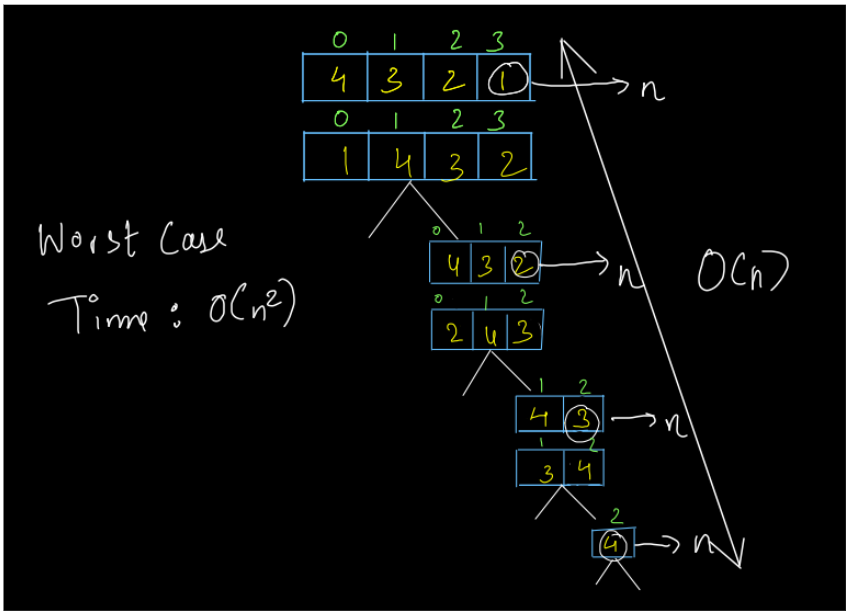 0 1 2 3
4 3 2 1 n
0 1 2 3
1 4 3 2
Worst Case
Time : O(n²)
0 1 2
4 3 2 n
O(n)
0 1 2
2 4 3
1 2
4 3 n
1 2
3 4
2
4 n